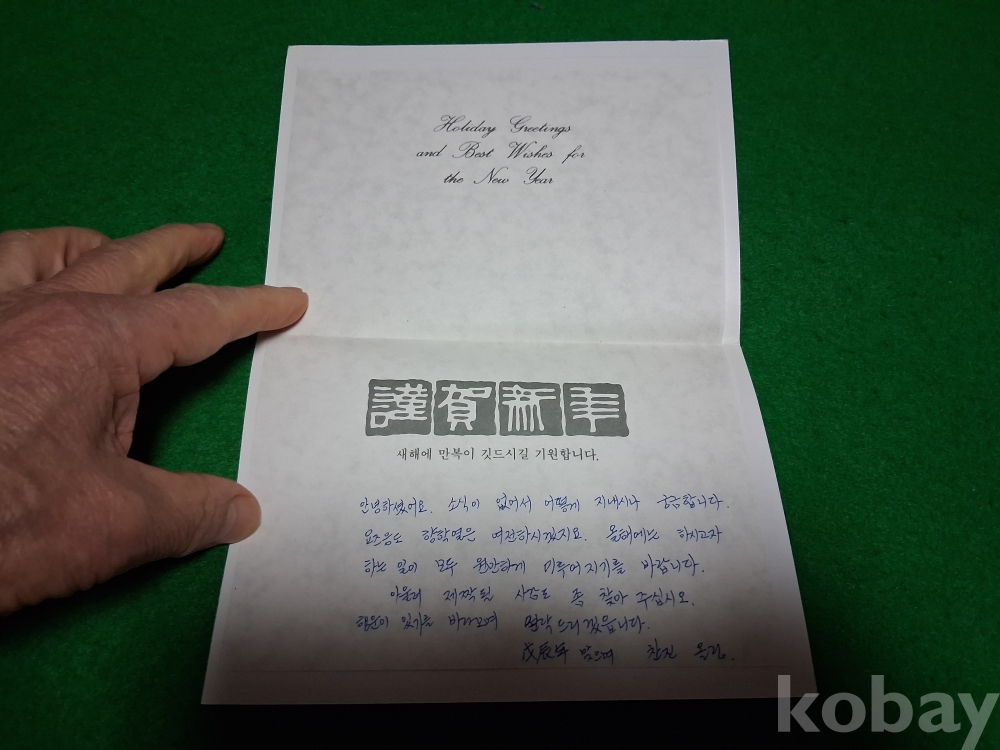 Holiday Greetings
and Best Wishes for
the New Year
謹賀新年
새해에 만복이 깃드시길 기원합니다.
안녕하셨어요. 소식이 없어서 어떻게 지내시나 궁금합니다.
요즈음도 향학열은 여전하시겠지요. 올해에는 하시고자
하는 일이 모두 원만하게 이루어지기를 바랍니다.
아울러 제짝될 사람도 좀 찾아 주십시오.
행운이 있기를 바라오며 연락드리겠읍니다.
戊辰年 맞으며 찬진 올림.
kobay